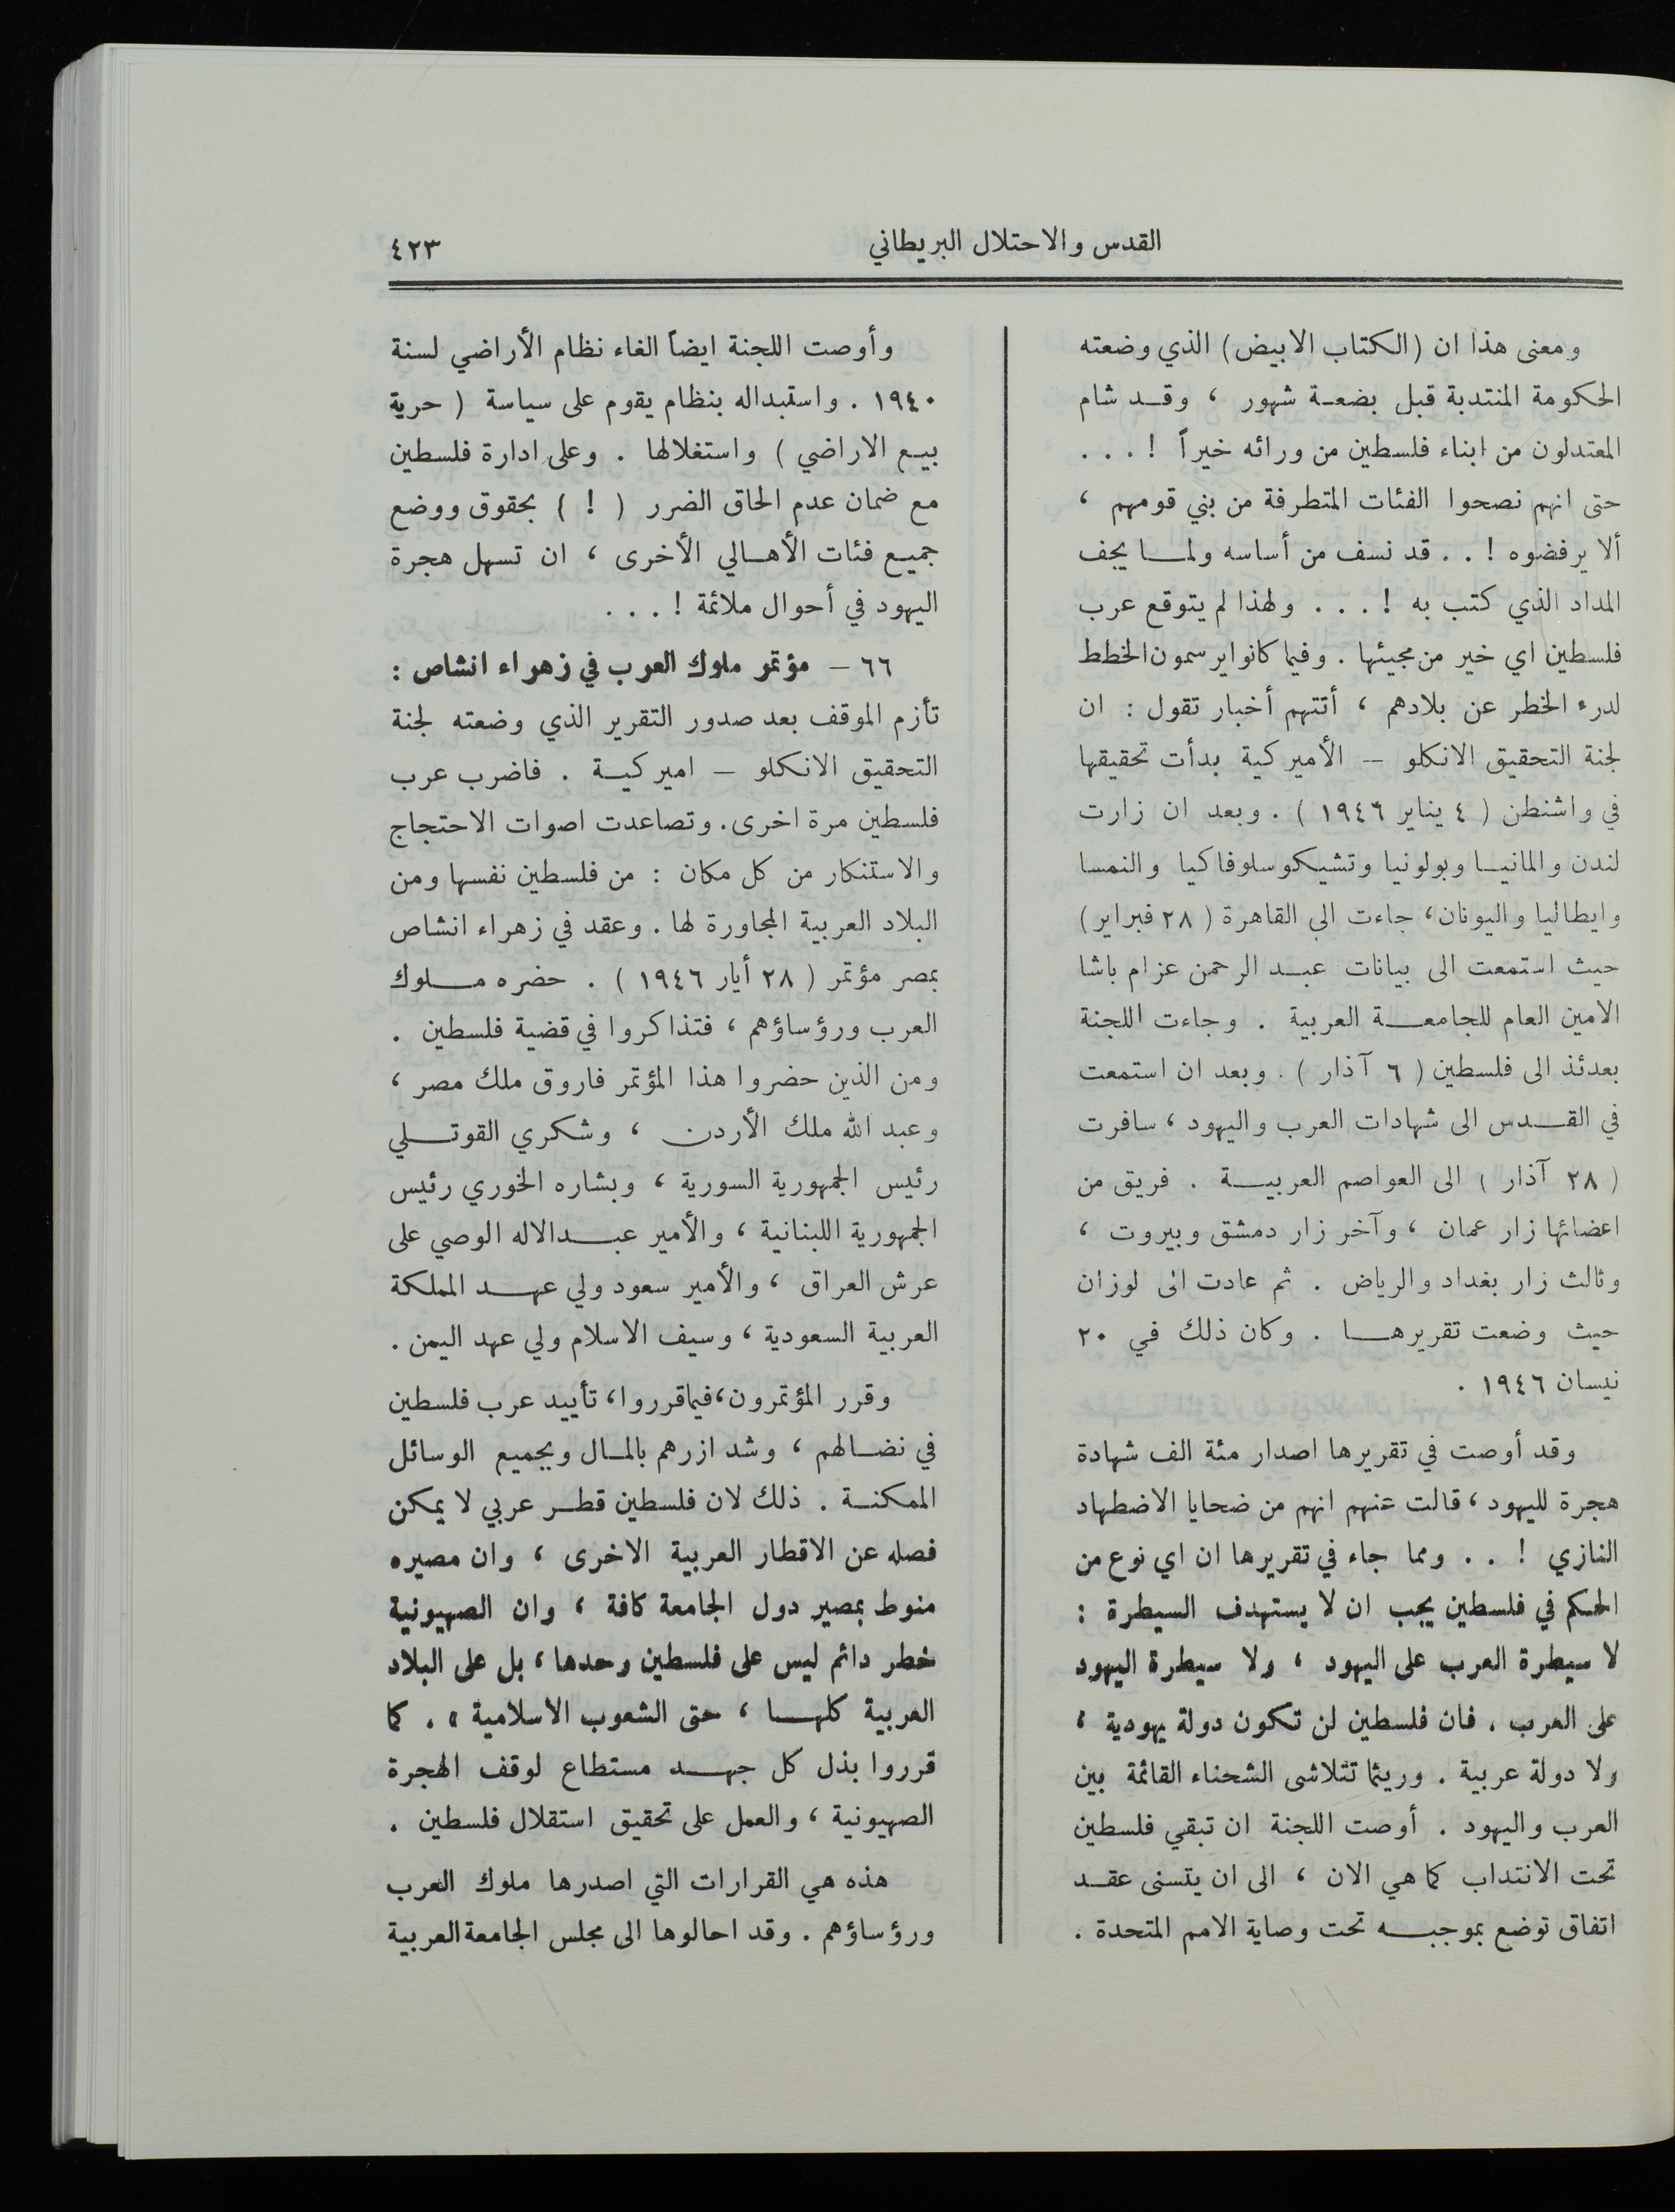 القدس والاحتلال البريطاني
٤٢٣
ومعنى هذا ان (الكتاب الابيض) الذي وضعته
الحكومة المنتدبة قبل بضعة شهور ، وقد شام
المعتدلون من ابناء فلسطين من ورائه خيراً ! . . .
حتى انهم نصحوا الفئات المتطرفة من بني قومهم ،
ألا يرفضوه ! . . قد نسف من أساسه ولما يجف
المداد الذي كتب به ! . . . ولهذا لم يتوقع عرب
فلسطين اي خير من مجيئها . وفيما كانوا يرسمون الخطط
لدرء الخطر عن بلادهم ، أتتهم أخبار تقول : ان
لجنة التحقيق الانكلو – الأميركية بدأت تحقيقها
في واشنطن ( ٤ يناير ١٩٤٦ ) . وبعد ان زارت
لندن والمانيا وبولونيا وتشيكوسلوفاكيا والنمسا
وايطاليا واليونان، جاءت الى القاهرة ( ٢٨ فبراير )
حيث استمعت الى بيانات عبد الرحمن عزام باشا
الامين العام للجامعة العربية . وجاءت اللجنة
بعدئذ الى فلسطين ( ٦ آذار ) . وبعد ان استمعت
في القدس الى شهادات العرب واليهود ، سافرت
( ٢٨ آذار ) الى العواصم العربية . فريق من
اعضائها زار عمان ، وآخر زار دمشق وبيروت ،
وثالث زار بغداد والرياض . ثم عادت الى لوزان
حيث وضعت تقريرها . وكان ذلك في ٢٠
نيسان ١٩٤٦ .
وقد أوصت في تقريرها اصدار مئة الف شهادة
هجرة لليهود ، قالت عنهم انهم من ضحايا الاضطهاد
النازي ! . . ومما جاء في تقريرها ان اي نوع من
الحكم في فلسطين يجب ان لا يستهدف السيطرة :
لا سيطرة العرب على اليهود ، ولا سيطرة اليهود
على العرب . فان فلسطين لن تكون دولة يهودية ،
ولا دولة عربية . وريثما تتلاشى الشحناء القائمة بين
العرب واليهود . أوصت اللجنة ان تبقي فلسطين
تحت الانتداب كما هي الان ، الى ان يتسنى عقد
اتفاق توضع بموجبه تحت وصاية الامم المتحدة .
وأوصت اللجنة ايضاً الغاء نظام الأراضي لسنة
١٩٤٠ . واستبداله بنظام يقوم على سياسة ( حرية
بيع الاراضي ) واستغلالها . وعلى ادارة فلسطين
مع ضمان عدم الحاق الضرر ( ! ) بحقوق ووضع
جميع فئات الأهالي الأخرى ، ان تسهل هجرة
اليهود في أحوال ملائمة ! . . .
٦٦ – مؤتمر ملوك العرب في زهراء انشاص :
تأزم الموقف بعد صدور التقرير الذي وضعته لجنة
التحقيق الانكلو – اميركية . فاضرب عرب
فلسطين مرة اخرى. وتصاعدت اصوات الاحتجاج
والاستنكار من كل مكان : من فلسطين نفسها ومن
البلاد العربية المجاورة لها . وعقد في زهراء انشاص
بمصر مؤتمر ( ٢٨ أيار ١٩٤٦ ) . حضره ملوك
العرب ورؤساؤهم ، فتذاكروا في قضية فلسطين .
ومن الذين حضروا هذا المؤتمر فاروق ملك مصر ،
وعبد الله ملك الأردن ، وشكري القوتلي
رئيس الجمهورية السورية ، وبشاره الخوري رئيس
الجمهورية اللبنانية ، والأمير عبدالاله الوصي على
عرش العراق ، والأمير سعود ولي عهد المملكة
العربية السعودية ، وسيف الاسلام ولي عهد اليمن .
وقرر المؤتمرون، فيما قرروا، تأييد عرب فلسطين
في نضالهم ، وشد ازرهم بالمال وبجميع الوسائل
الممكنة . ذلك لان فلسطين قطر عربي لا يمكن
فصله عن الاقطار العربية الاخرى ، وان مصيره
منوط بمصير دول الجامعة كافة ، وان الصهيونية
خطر دائم ليس على فلسطين وحدها ، بل على البلاد
العربية كلها ، حتى الشعوب الاسلامية » . كما
قرروا بذل كل جهد مستطاع لوقف الهجرة
الصهيونية ، والعمل على تحقيق استقلال فلسطين .
هذه هي القرارات التي اصدرها ملوك العرب
ورؤساؤهم . وقد احالوها الى مجلس الجامعة العربية